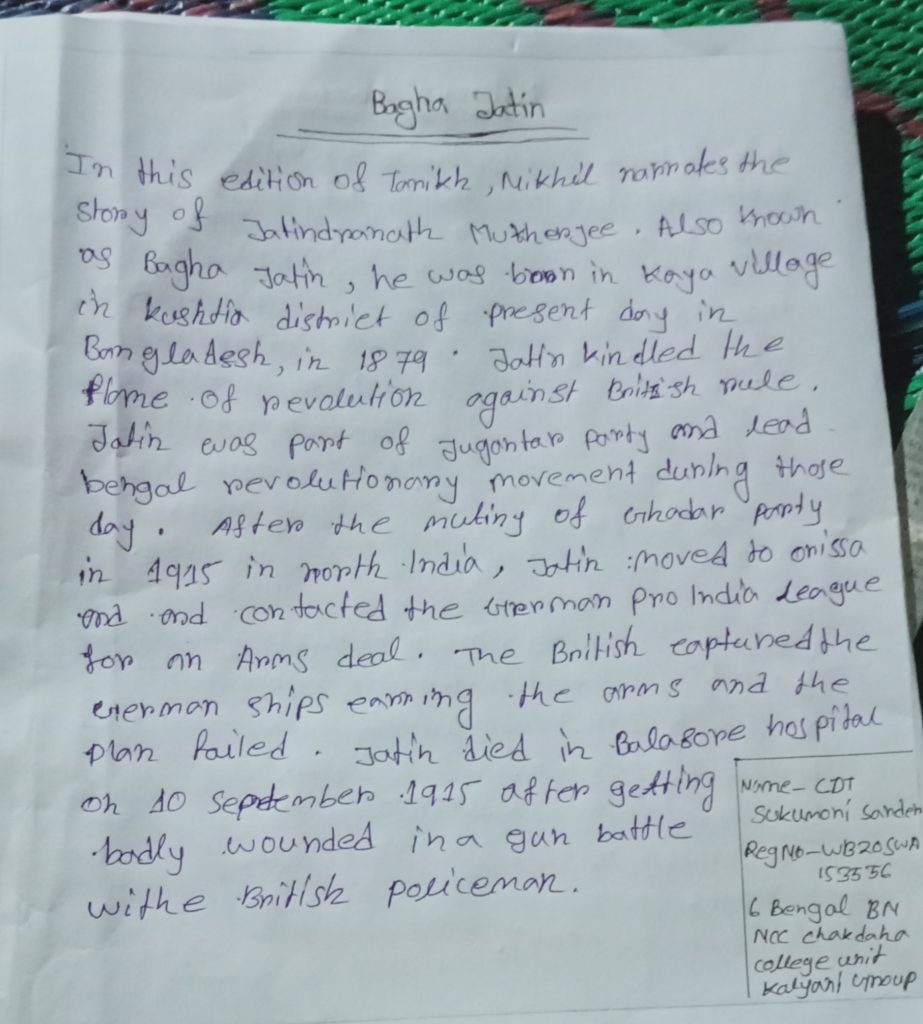 Bagha Jatin
In this edition of Tarrikh, Nikhil narrates the
Story of Jatindranath Mukherjee. Also known
as Bagha Jatin, he was born in Kaya village
in kushtia district of present day in
Bangladesh, in 1879. Jatin kindled the
flame of revolution against British rule.
Jatin was part of Jugantar party and lead
bengal revolutionary movement during those
day. After the mutiny of Ghadar party
in 1915 in north India, Jatin moved to orissa
and and contacted the German Pro India League
for an Arms deal. The British captured the
German ships earring the arms and the
plan failed. Jatin died in Balasore hospital
on 10 September 1915 after getting
badly wounded in a gun battle
withe British policeman.
Name- CDT
Sukumoni Sarder
Reg No- WB20SWA
153556
6 Bengal BN
NCC chakdaha
college unit
Kalyani Group